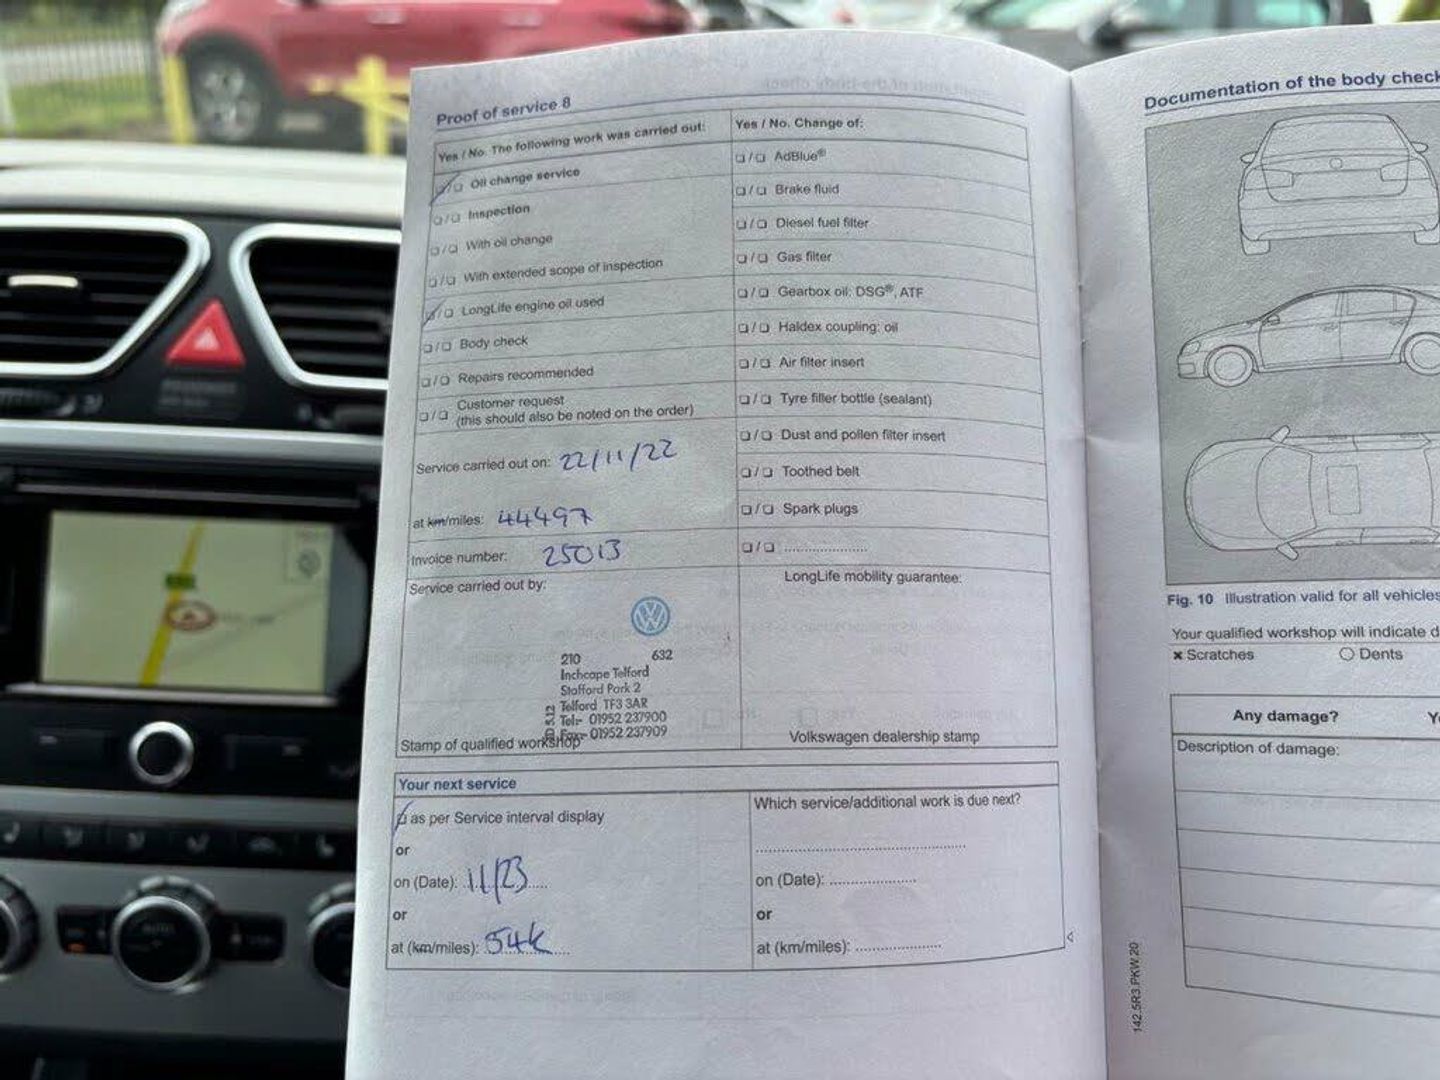 Proof of service 8
Yes / No. The following work was carried out:
❏/❏ Oil change service
❏/❏ Inspection
❏/❏ With oil change
❏/❏ With extended scope of inspection
❏/❏ LongLife engine oil used
❏/❏ Body check
❏/❏ Repairs recommended
❏/❏ Customer request
(this should also be noted on the order)
Service carried out on: 22/11/22
at km/miles: 44497
Invoice number: 25013
Service carried out by:
210 632
Inchcape Telford
Stafford Park 2
Telford TF3 3AR
Tel:- 01952 237900
Fax:- 01952 237909
Stamp of qualified workshop
Yes / No. Change of:
❏/❏ AdBlue®
❏/❏ Brake fluid
❏/❏ Diesel fuel filter
❏/❏ Gas filter
❏/❏ Gearbox oil: DSG®, ATF
❏/❏ Haldex coupling: oil
❏/❏ Air filter insert
❏/❏ Tyre filler bottle (sealant)
❏/❏ Dust and pollen filter insert
❏/❏ Toothed belt
❏/❏ Spark plugs
❏/❏ ......................
LongLife mobility guarantee:
Volkswagen dealership stamp
Your next service
❏ as per Service interval display
or
on (Date): 11/23
or
at (km/miles): 54k
Which service/additional work is due next?
on (Date): ......................
or
at (km/miles): ......................
142.5R3.PKW.20
Documentation of the body check
Fig. 10 Illustration valid for all vehicles
Your qualified workshop will indicate d
× Scratches ○ Dents
Any damage? Y
Description of damage:
AUTO